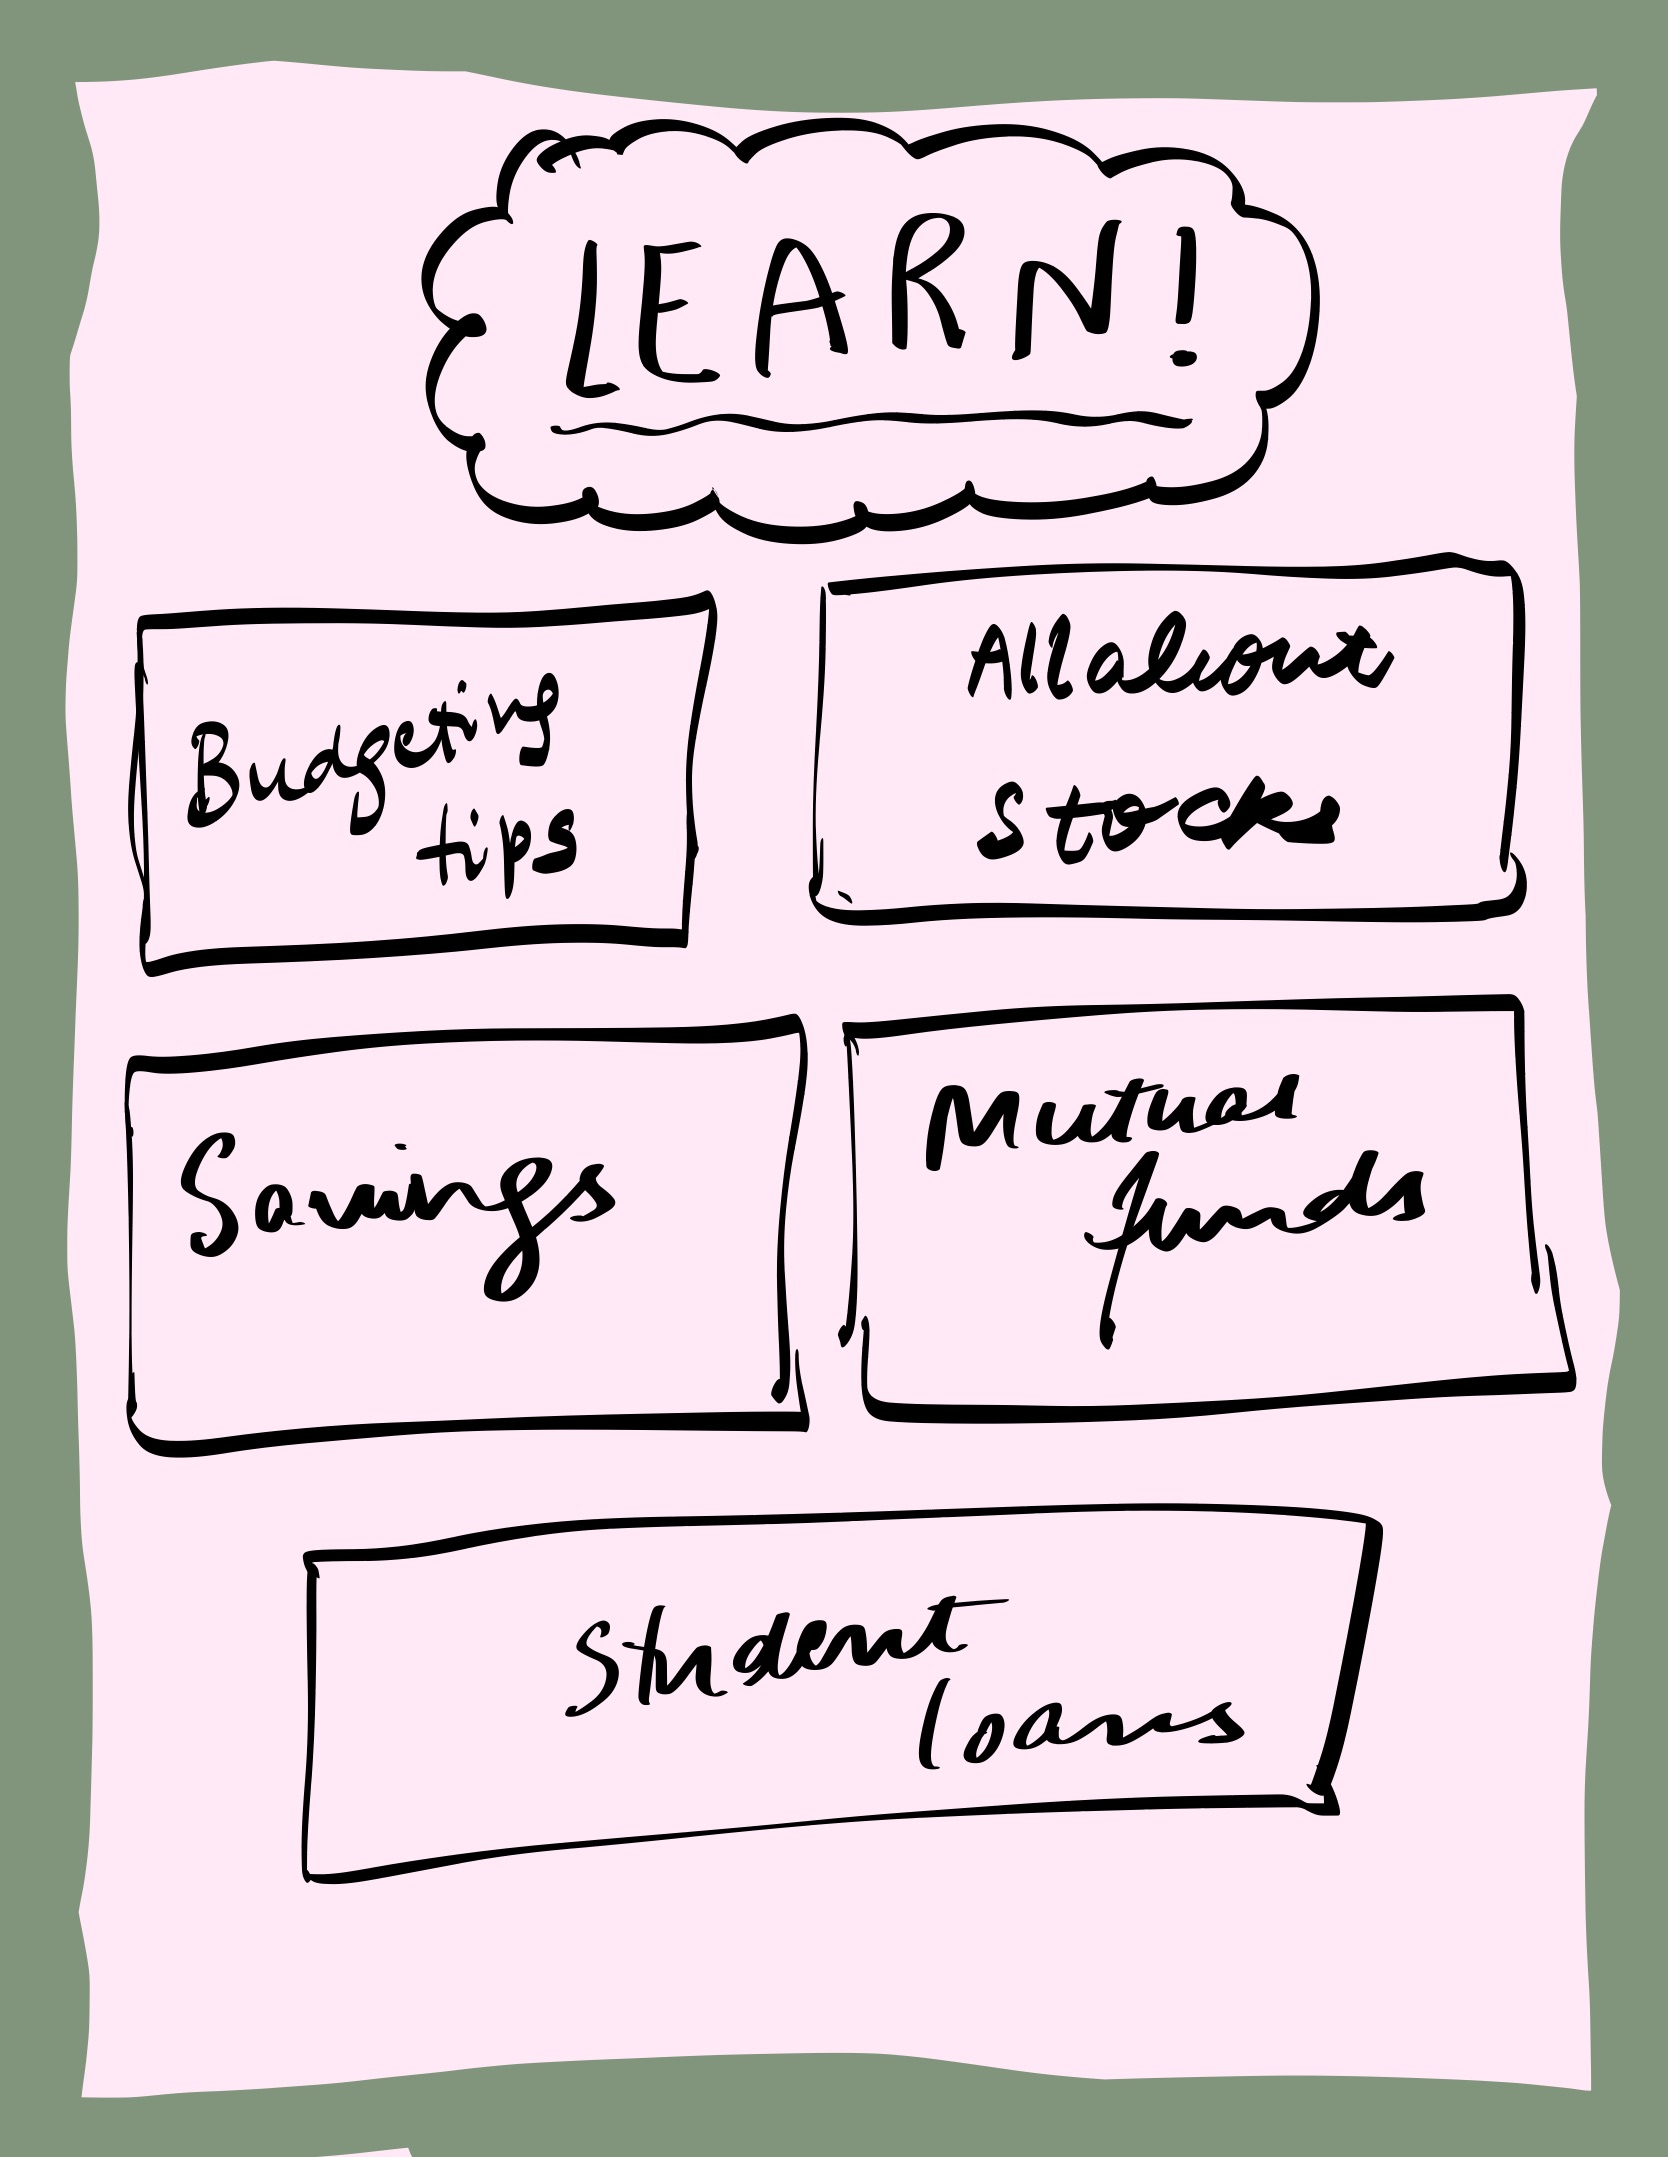 LEARN!
Budgeting
tips
All about
Stocks
Savings
Mutual
funds
Student
loans